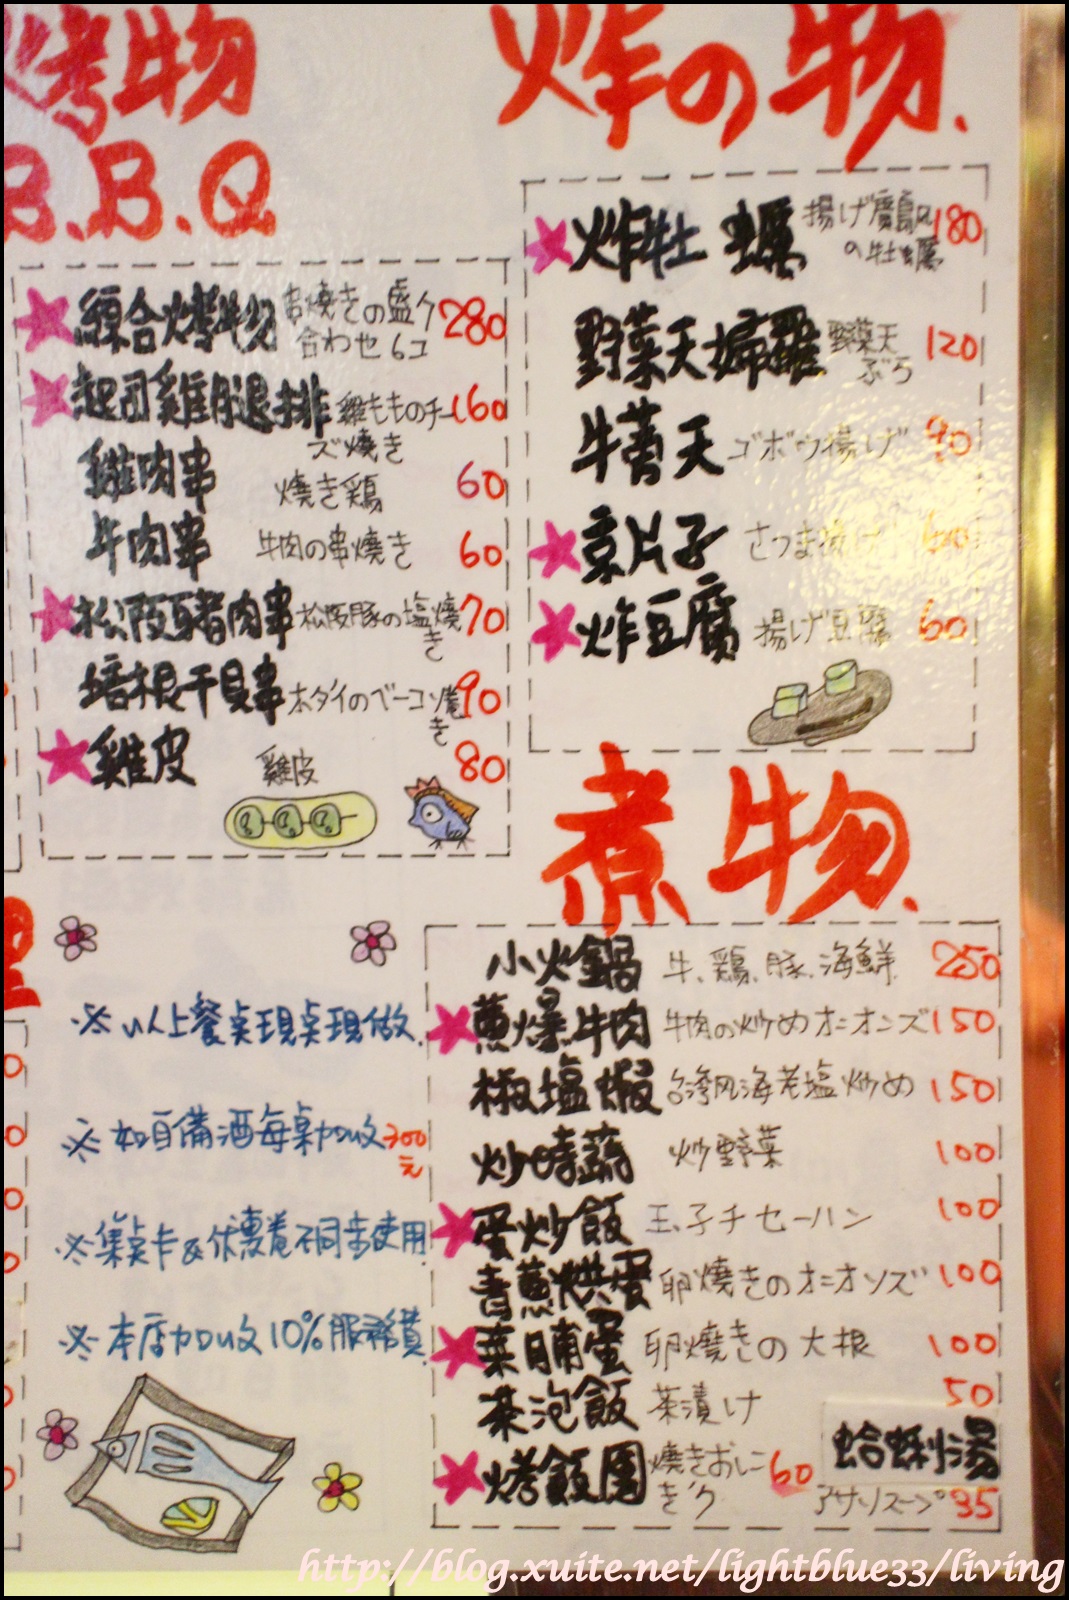 烤物
B.B.Q
綜合烤物 串燒きの盛り合わせ6コ 280
起司雞腿排 雞もものチーズ燒き 160
雞肉串 燒き鶏 60
牛肉串 牛肉の串燒き 60
松阪豬肉串 松阪豚の塩燒き 70
培根干貝串 ホタイのベーコン燒き 90
雞皮 雞皮 80
炸の物.
炸牡蠣 揚げ廣島風の牡蠣 180
野菜天婦羅 野菜天ぷら 120
牛蒡天 ゴボウ揚げ 90
京片子 さつま揚げ 60
炸豆腐 揚げ豆腐 60
煮物.
小火鍋 牛、鶏、豚、海鮮 250
蔥爆牛肉 牛肉の炒めオニオンズ 150
椒塩蝦 台湾风海老塩炒め 150
炒時蔬 炒野菜 100
蛋炒飯 玉子チャーハン 100
青蔥烘蛋 卵燒きのオニオンズ 100
菜脯蛋 卵燒きの大根 100
茶泡飯 茶漬け 50
烤飯團 燒きおにぎり 60
蛤蜊湯
アサリスープ 35
※以上餐桌現桌現做.
※如自備酒每桌加收300元
※集点卡&优惠卷不同時使用.
※本店加收10%服務費.
http://blog.xuite.net/lightblue33/living